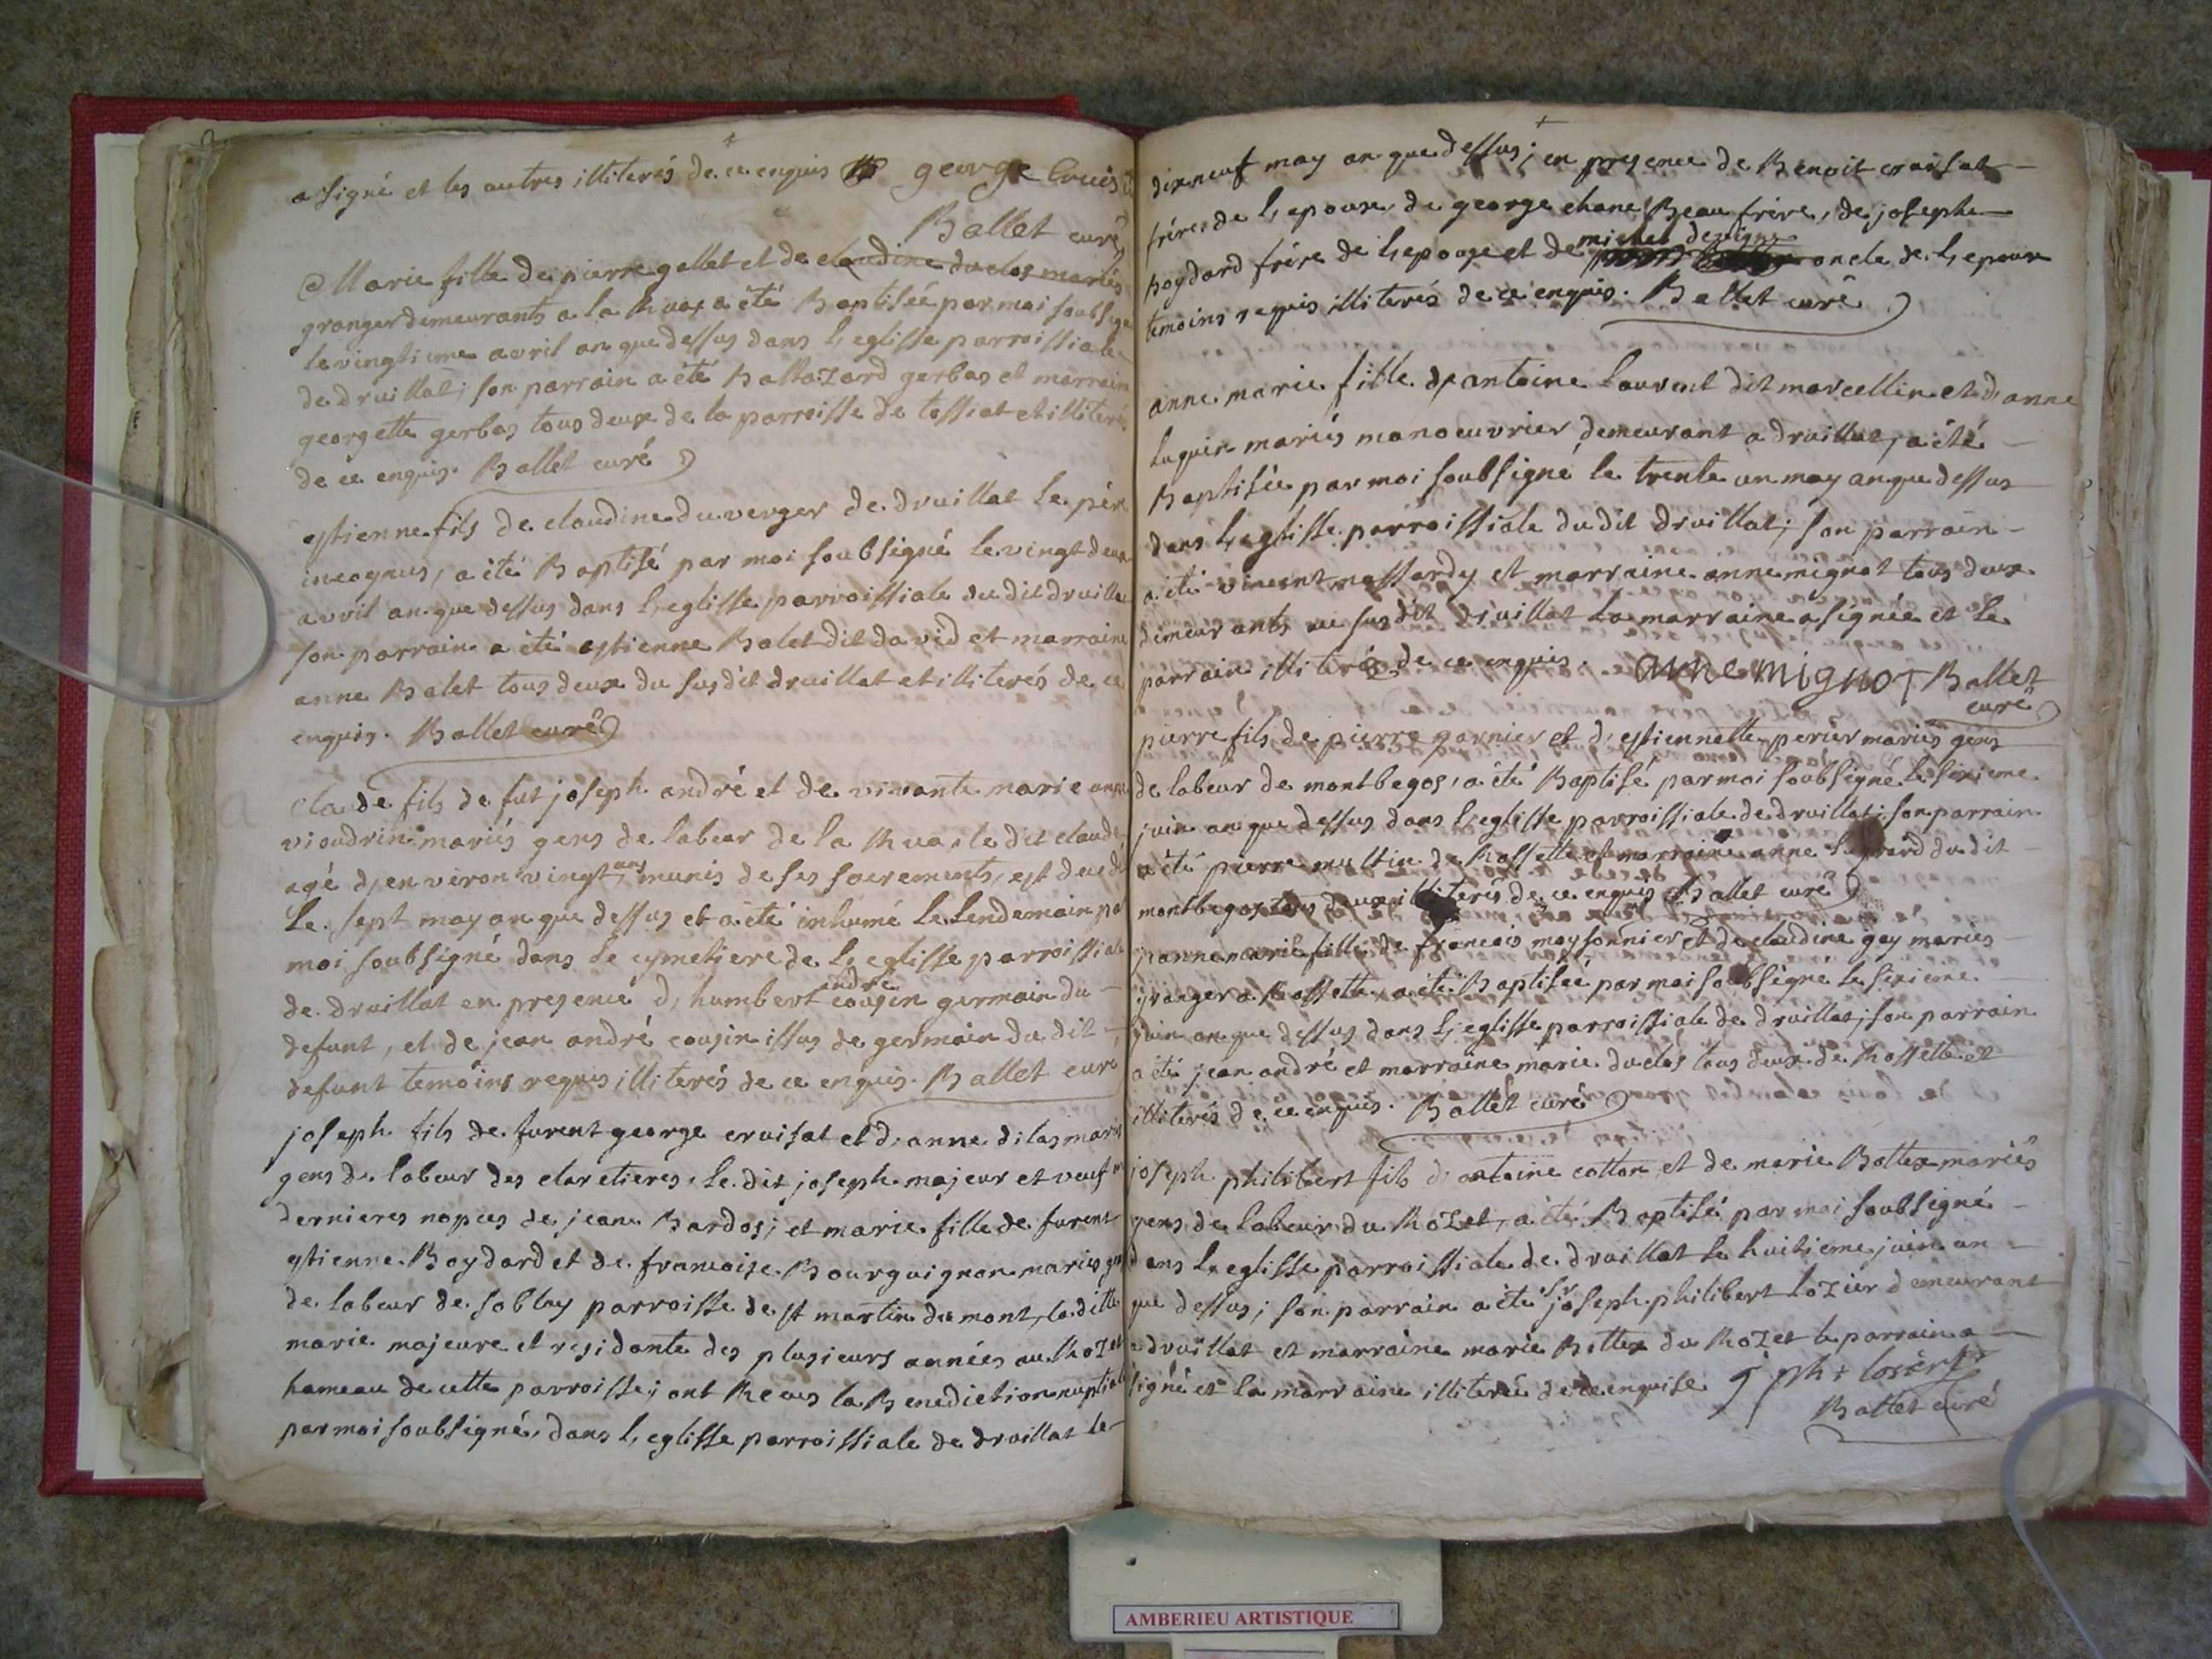 a signé et les autres illiterés de ce enquis george Cruis
Ballet curé
Marie fille de pierre gellet et de claudine duclos mariés
granger demeurants a la Ruaz a été Baptisée par moi soubsigné
le vingtieme avril an que dessus dans l'eglisse parroissiale
de druillat; son parrain a été Baltazard gerbas et marraine
georgette gerbas tous deux de la parroisse de tossiat et illiterés
de ce enquis. Ballet curé
estienne fils de claudine du verger de druillat le père
incognus, a été Baptisé par moi soubsigné le vingt deux
avril an que dessus dans l'eglisse parroissiale du dit druillat
son parrain a été estienne Balet dit david et marraine
anne Balet tous deux du susdit druillat et illiterés de ce
enquis. Ballet curé
claude fils de fut joseph andré et de vivante marie anne
vioudrin mariés gens de labeur de la Rua, le dit claude
agé d'environ vingt ans munis de ses sacrements, est decedé
le sept may an que dessus et a été inhumé le lendemain par
moi soubsigné dans le cymetiere de l'eglisse parroissiale
de druillat en presence d'humbert andré cousin germain du
defunt, et de jean andré cousin issus de germain du dit
defunt temoins requis illiterés de ce enquis. Ballet curé
joseph fils de furent george cruisat et d'anne dilas mariés
gens de labeur des claretieres, le dit joseph majeur et veuf en
dernieres nopces de jeane Bardos; et marie fille de furent
estienne Boydard et de francoise Bourguignon mariés gens
de labeur de soblay parroisse de st martin du mont, la ditte
marie majeure et residante des plusieurs années au Rozet
hameau de cette parroisse; ont Receus la Benediction nuptiale
par moi soubsigné, dans l'eglisse parroissiale de druillat le
dixneuf may an que dessus; en presence de Benoit cruisat
frère de l'epoux, de george chane Beau frère, de joseph
boydard frère de l'epouse et de michel oncle de l'epoux
temoins requis illiterés de ce enquis. Ballet curé
anne marie fille d'antoine laurent dit marcellin et d'anne
luquin mariés manoeuvrier demeurant a druillat, a été
Baptisée par moi soubsigné le trente un may an que dessus
dans l'eglisse parroissiale dudit druillat; son parrain
a été vincent massardy et marraine anne mignot tous deux
demeurants au susdit druillat la marraine a signée et le
parrain illiteré de ce enquis. anne mignot Ballet
curé
pierre fils de pierre garnier et d'estiennette perier mariés gens
de labeur de montbegos, a été Baptisé par moi soubsigné le sixieme
juin an que dessus dans l'eglisse parroissiale de druillat; son parrain
a été pierre de Rossette et marraine anne du dit
montbegos tous deux illiterés de ce enquis Ballet curé
janne marie fille de francois maysonnier et de claudine gay mariés
granger a Rossette, a été Baptisée par moi soubsigné le sixieme
juin an que dessus dans l'eglisse parroissiale de druillat; son parrain
a été jean andré et marraine marie duclos tous deux de Rossette et
illiterés de ce enquis. Ballet curé
joseph philibert fils d'antoine cotton et de marie Bottex mariés
gens de labeur du Rozet, a été Baptisé par moi soubsigné
dans l'eglisse parroissiale de druillat le huitieme juin an
que dessus; son parrain a été sr joseph philibert lozier demeurant
a druillat et marraine marie Bottex du Rozet le parrain a
signé et la marraine illiterée de ce enquise j ph: losier
Ballet curé
AMBERIEU ARTISTIQUE